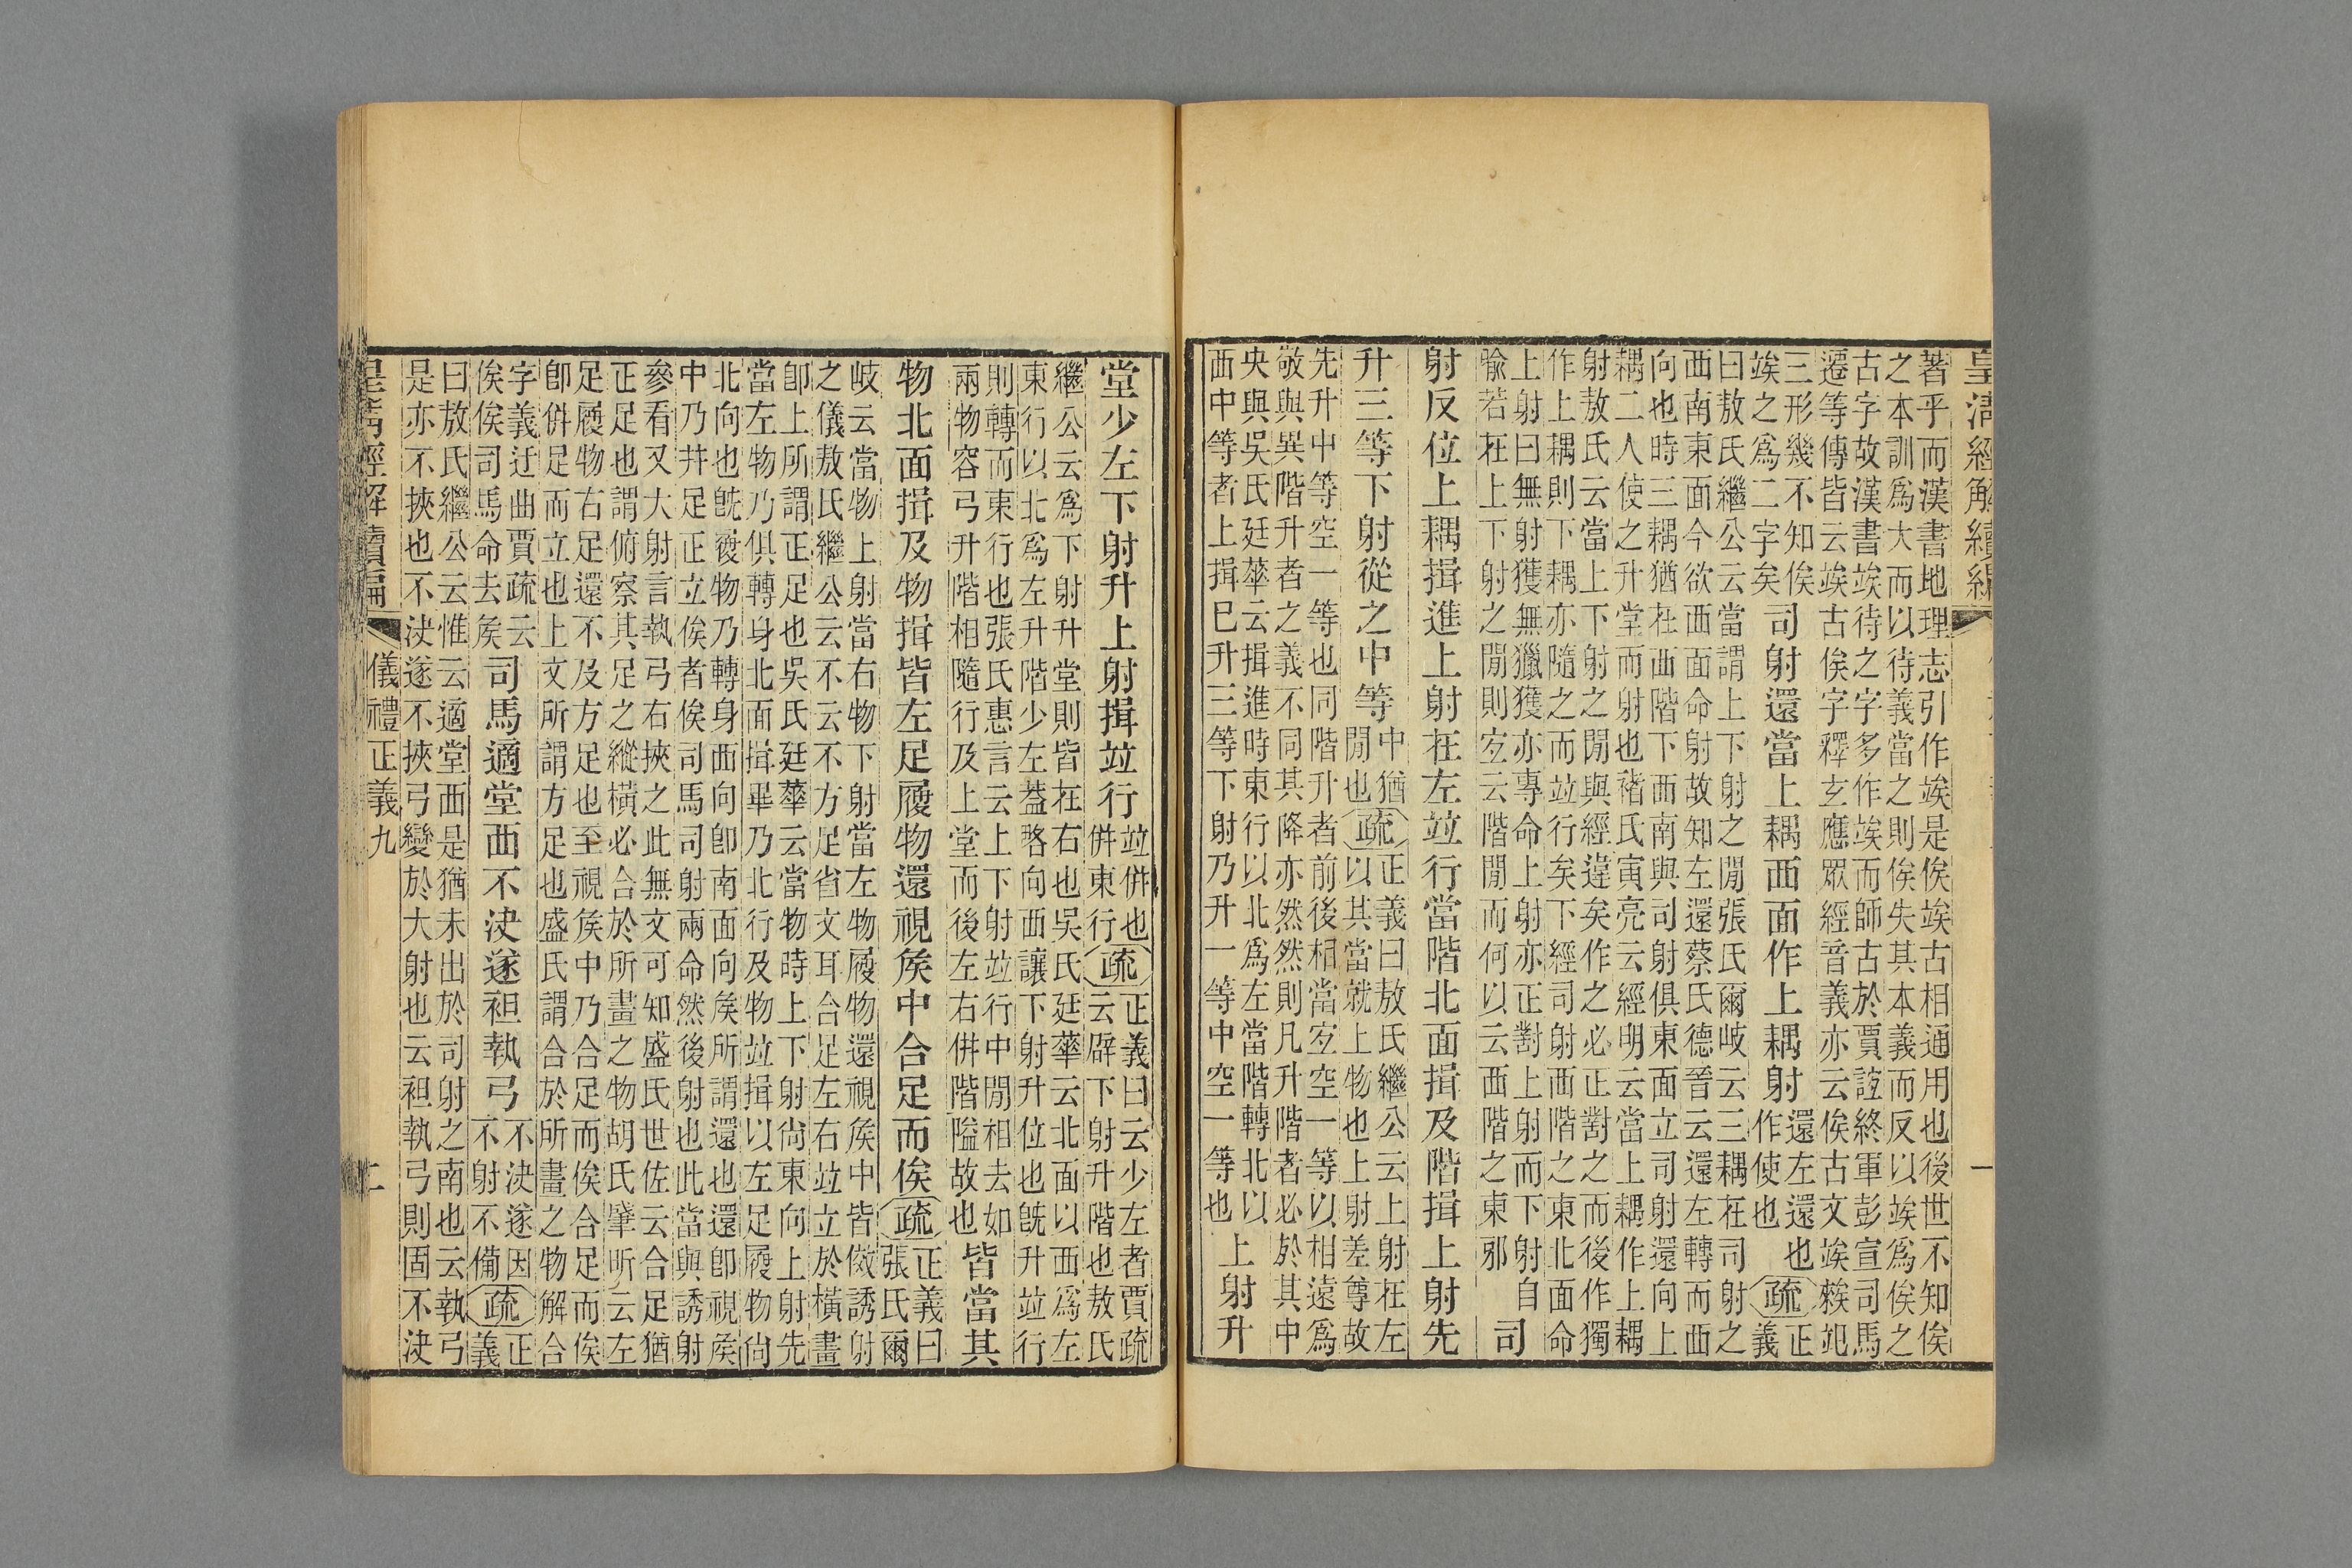 皇清經解續編
著乎而漢書地理志引作竢是俟竢古相通用也後世不知俟
之本訓爲大而以待義當之則俟失其本義而反以竢爲俟之
古字故漢書竢待之字多作竢而師古於賈誼終軍彭宣司馬
遷等傳皆云竢古俟字釋玄應眾經音義亦云俟古文竢
三形幾不知俟
竢之爲二字矣
司射還當上耦西面作上耦射
還左還也
作使也
疏
正
義
曰敖氏繼公云當謂上下射之閒張氏爾岐云三耦在司射之
西南東面今欲西面命射故知左還蔡氏德晉云還左轉而西
向也時三耦猶在西階下西南與司射俱東面立司射還向上
耦二人使之升堂而射也褚氏寅亮云經明云當上耦作上耦
射敖氏云當上下射之閒與經違矣作之必正對之而後作獨
作上耦則下耦亦隨之而竝行矣下經司射西階之東北面命
上射曰無射獲無獵獲亦專命上射亦正對上射而下射自
喻若在上下射之閒則宜云階閒而何以云西階之東邪
司
射反位上耦揖進上射在左竝行當階北面揖及階揖上射先
升三等下射從之中等
中猶
閒也
疏
正義曰敖氏繼公云上射在左
以其當就上物也上射差尊故
先升中等空一等也同階升者前後相當宜空一等以相遠爲
敬與異階升者之義不同其降亦然然則凡升階者必於其中
央與吳氏廷華云揖進時東行以北爲左當階轉北以
西中等者上揖已升三等下射乃升一等中空一等也
上射升
一
堂少左下射升上射揖竝行
竝併也
併東行
疏
正義曰云少左者賈疏
云辟下射升階也敖氏
繼公云爲下射升堂則皆在右也吳氏廷華云北面以西爲左
東行以北爲左升階少左葢略向西讓下射升位也旣升竝行
則轉而東行也張氏惠言云上下射竝行中閒相去如
兩物容弓升階相隨行及上堂而後左右併階隘故也
皆當其
物北面揖及物揖皆左足履物還視矦中合足而俟
疏
正義曰
張氏爾
岐云當物上射當右物下射當左物履物還視矦中皆倣誘射
之儀敖氏繼公云不云不方足省文耳合足左右竝立於橫畫
卽上所謂正足也吳氏廷華云當物時上下射尙東向上射先
當左物乃俱轉身北面揖畢乃北行及物竝揖以左足履物尙
北向也旣履物乃轉身西向卽南面向矦所謂還也還卽視矦
中乃井足正立俟者俟司馬司射兩命然後射也此當與誘射
參看又大射言執弓右挾之此無文可知盛氏世佐云合足猶
正足也謂俯察其足之縱橫必合於所畫之物胡氏肇昕云左
足履物右足還不及方足也至視矦中乃合足而俟合足而俟
卽併足而立也上文所謂方足也盛氏謂合於所畫之物解合
字義迂曲賈疏云
俟俟司馬命去矦
司馬適堂西不決遂袒執弓
不決遂因
不射不備
疏
正
義
曰敖氏繼公云惟云適堂西是猶未出於司射之南也云執弓
是亦不挾也不決遂不挾弓變於大射也云袒執弓則固不決
皇清經解續編
儀禮正義九
二